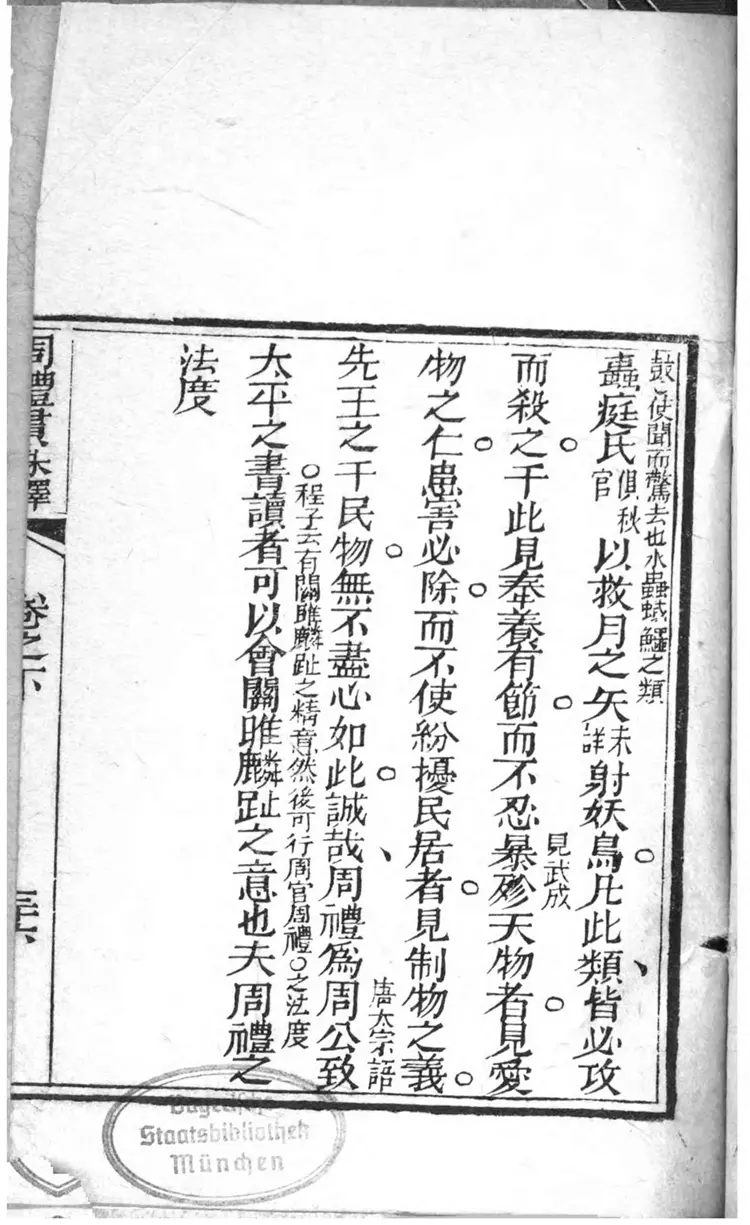 鼓使聞而驚去也水蟲蜮鱷之類
蟲庭氏俱秋官以救月之矢未詳射妖鳥凡此類皆必攻
而殺之于此見奉養有節而不忍暴殄天物者見愛
見武成
物之仁患害必除而不使紛擾民居者見制物之義
唐太宗語
先王之于民物無不盡心如此誠哉周禮為周公致
○程子云有關雎麟趾之精意然後可行周官周禮○之法度
太平之書讀者可以會關雎麟趾之意也夫周禮之
法度
周禮貫珠釋
卷之下
Staatsbibliothek
München